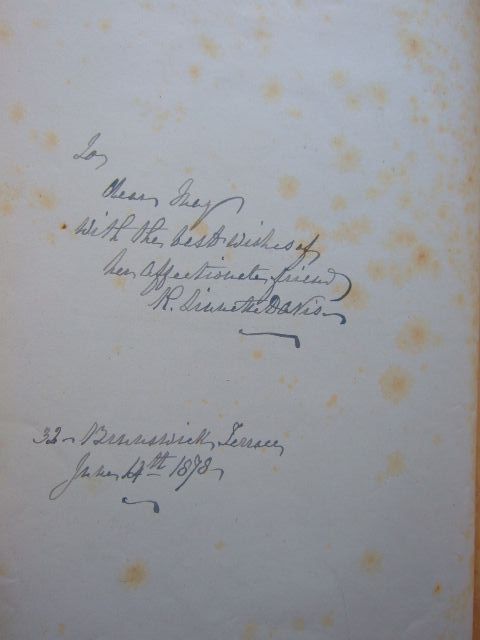 To
dear Meg
with the best wishes of
her affectionate friend
K. Davis
32 Brunswick Terrace
June 4th 1878